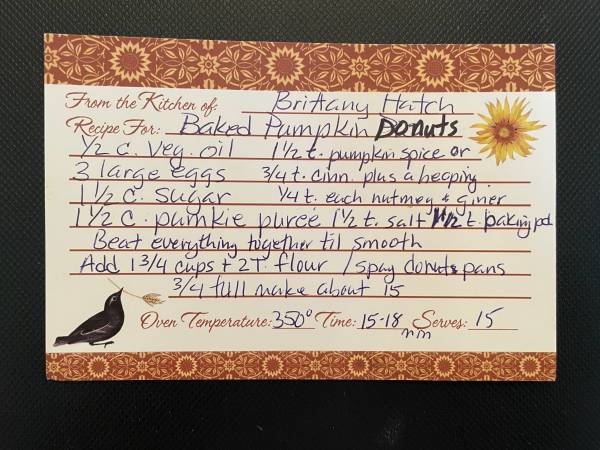 From the Kitchen of: Brittany Hatch
Recipe For: Baked Pumpkin Donuts
1/2 c. veg. oil 1 1/2 t. pumpkin spice or
3 large eggs 3/4 t. cinn. plus a heaping
1 1/2 c. sugar 1/4 t. each nutmeg & giner
1 1/2 c. pumkie pureé 1 1/2 t. salt 1 1/2 t. baking pod
Beat everything together til smooth
Add 1 3/4 cups + 2T. flour / spay donuts pans
3/4 full make about 15
Oven Temperature: 350° Time: 15-18 min Serves: 15